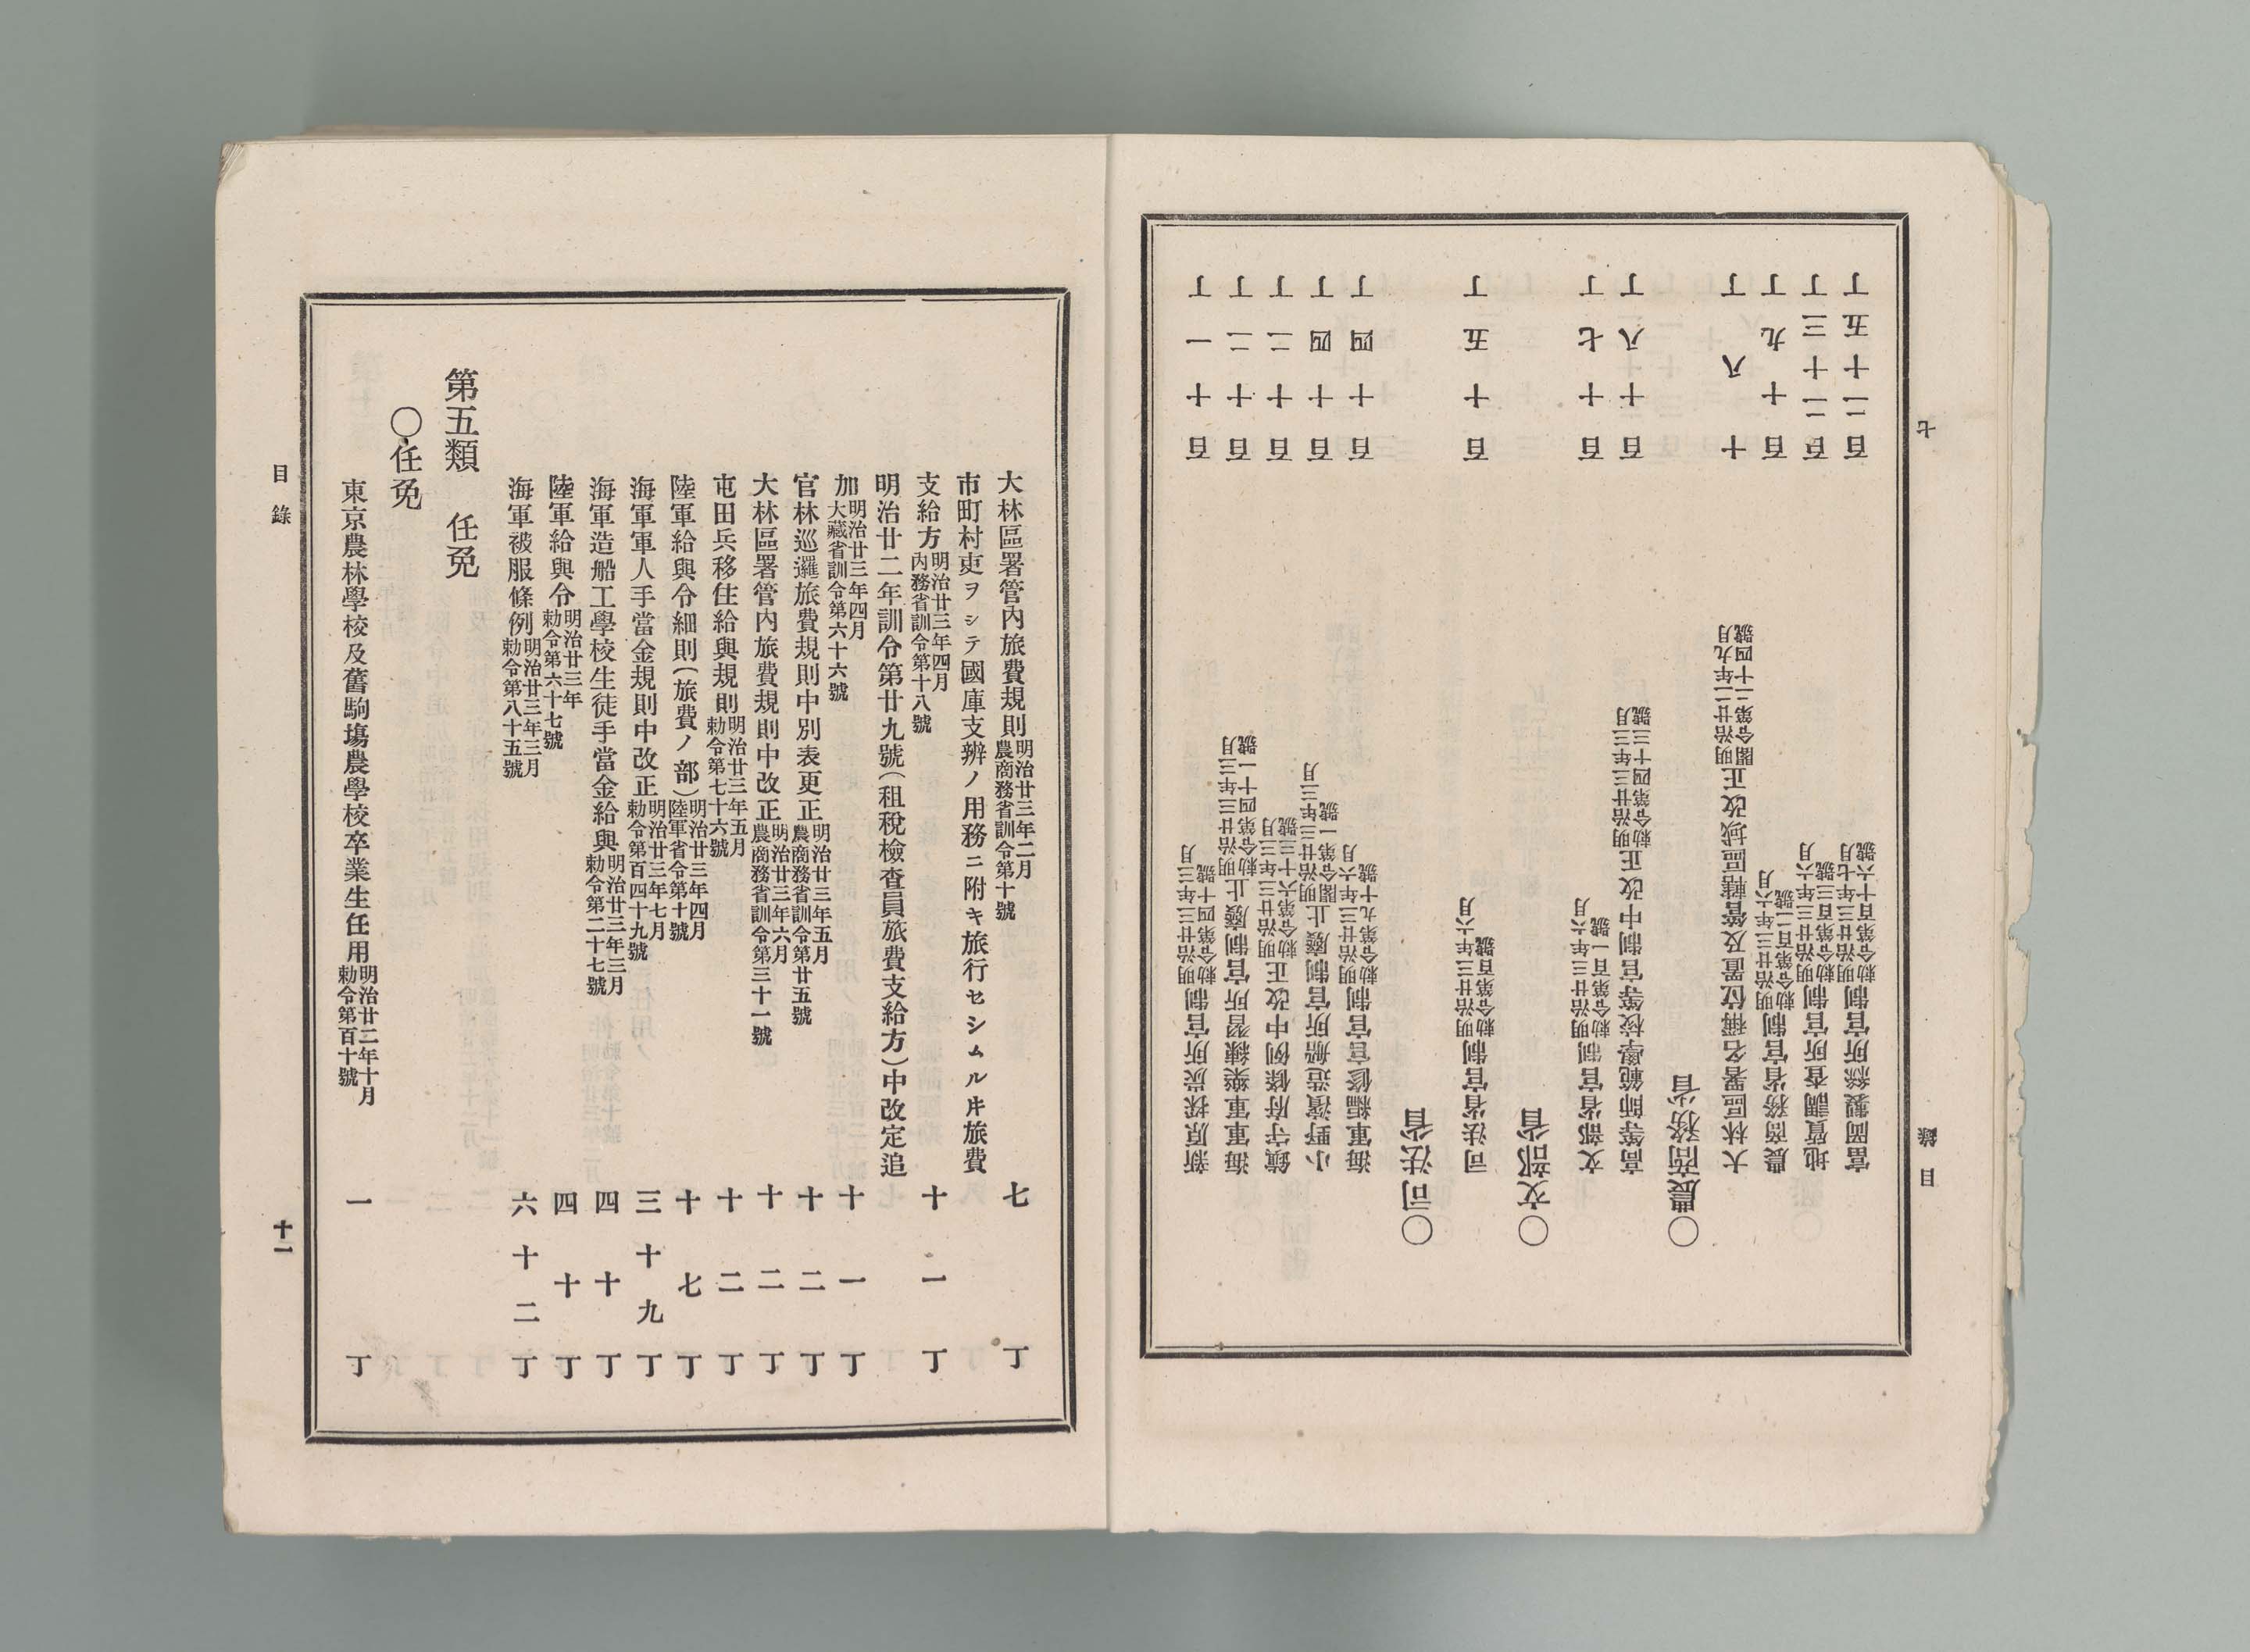 新原採炭所官制 明治廿三年三月 勅令第四十號 百十一丁
海軍軍樂練習所官制廢止 明治廿三年三月 勅令第四十一號 百十二丁
鎮守府條例中改正 明治廿三年三月 勅令第六十三號 百十二丁
小野濱造船所官制廢止 明治廿三年三月 閣令第一號 百十四丁
海軍編修官官制 明治廿三年六月 勅令第九十號 百十四丁
〇司法省
司法省官制 明治廿三年六月 勅令第百號 百十五丁
〇文部省
文部省官制 明治廿三年六月 勅令第百一號 百十七丁
高等師範學校等官制中改正 明治廿三年三月 勅令第四十三號 百十八丁
〇農商務省
大林區署名稱位置及管轄區域改正 明治廿二年九月 閣令第二十四號 十八丁
農商務省官制 明治廿三年六月 勅令第百二號 百十九丁
地質調査所官制 明治廿三年六月 勅令第百三號 百二十三丁
富岡製絲所官制 明治廿三年七月 勅令第百十六號 百二十五丁
目錄 七
大林區署管內旅費規則 明治廿三年二月 農商務省訓令第十號 七丁
市町村吏ヲシテ國庫支辨ノ用務ニ附キ旅行セシムルキ旅費
支給方 明治廿三年四月 內務省訓令第十八號 十一丁
明治廿二年訓令第廿九號(租稅檢査員旅費支給方)中改定追
加 明治廿三年四月 大藏省訓令第六十六號 十一丁
官林巡邏旅費規則中別表更正 明治廿三年五月 農商務省訓令第廿五號 十二丁
大林區署管內旅費規則中改正 明治廿三年六月 農商務省訓令第三十一號 十二丁
屯田兵移住給與規則 明治廿三年五月 勅令第七十六號 十二丁
陸軍給與令細則(旅費ノ部) 明治廿三年四月 陸軍省令第十號 十七丁
海軍軍人手當金規則中改正 明治廿三年七月 勅令第百四十九號 三十九丁
海軍造船工學校生徒手當金給與 明治廿三年三月 勅令第二十七號 四十丁
陸軍給與令 明治廿三年 勅令第六十七號 四十丁
海軍被服條例 明治廿三年三月 勅令第八十五號 六十二丁
第五類 任免
〇任免
東京農林學校及舊駒塲農學校卒業生任用 明治廿二年十月 勅令第百十號 一丁
目錄 十一